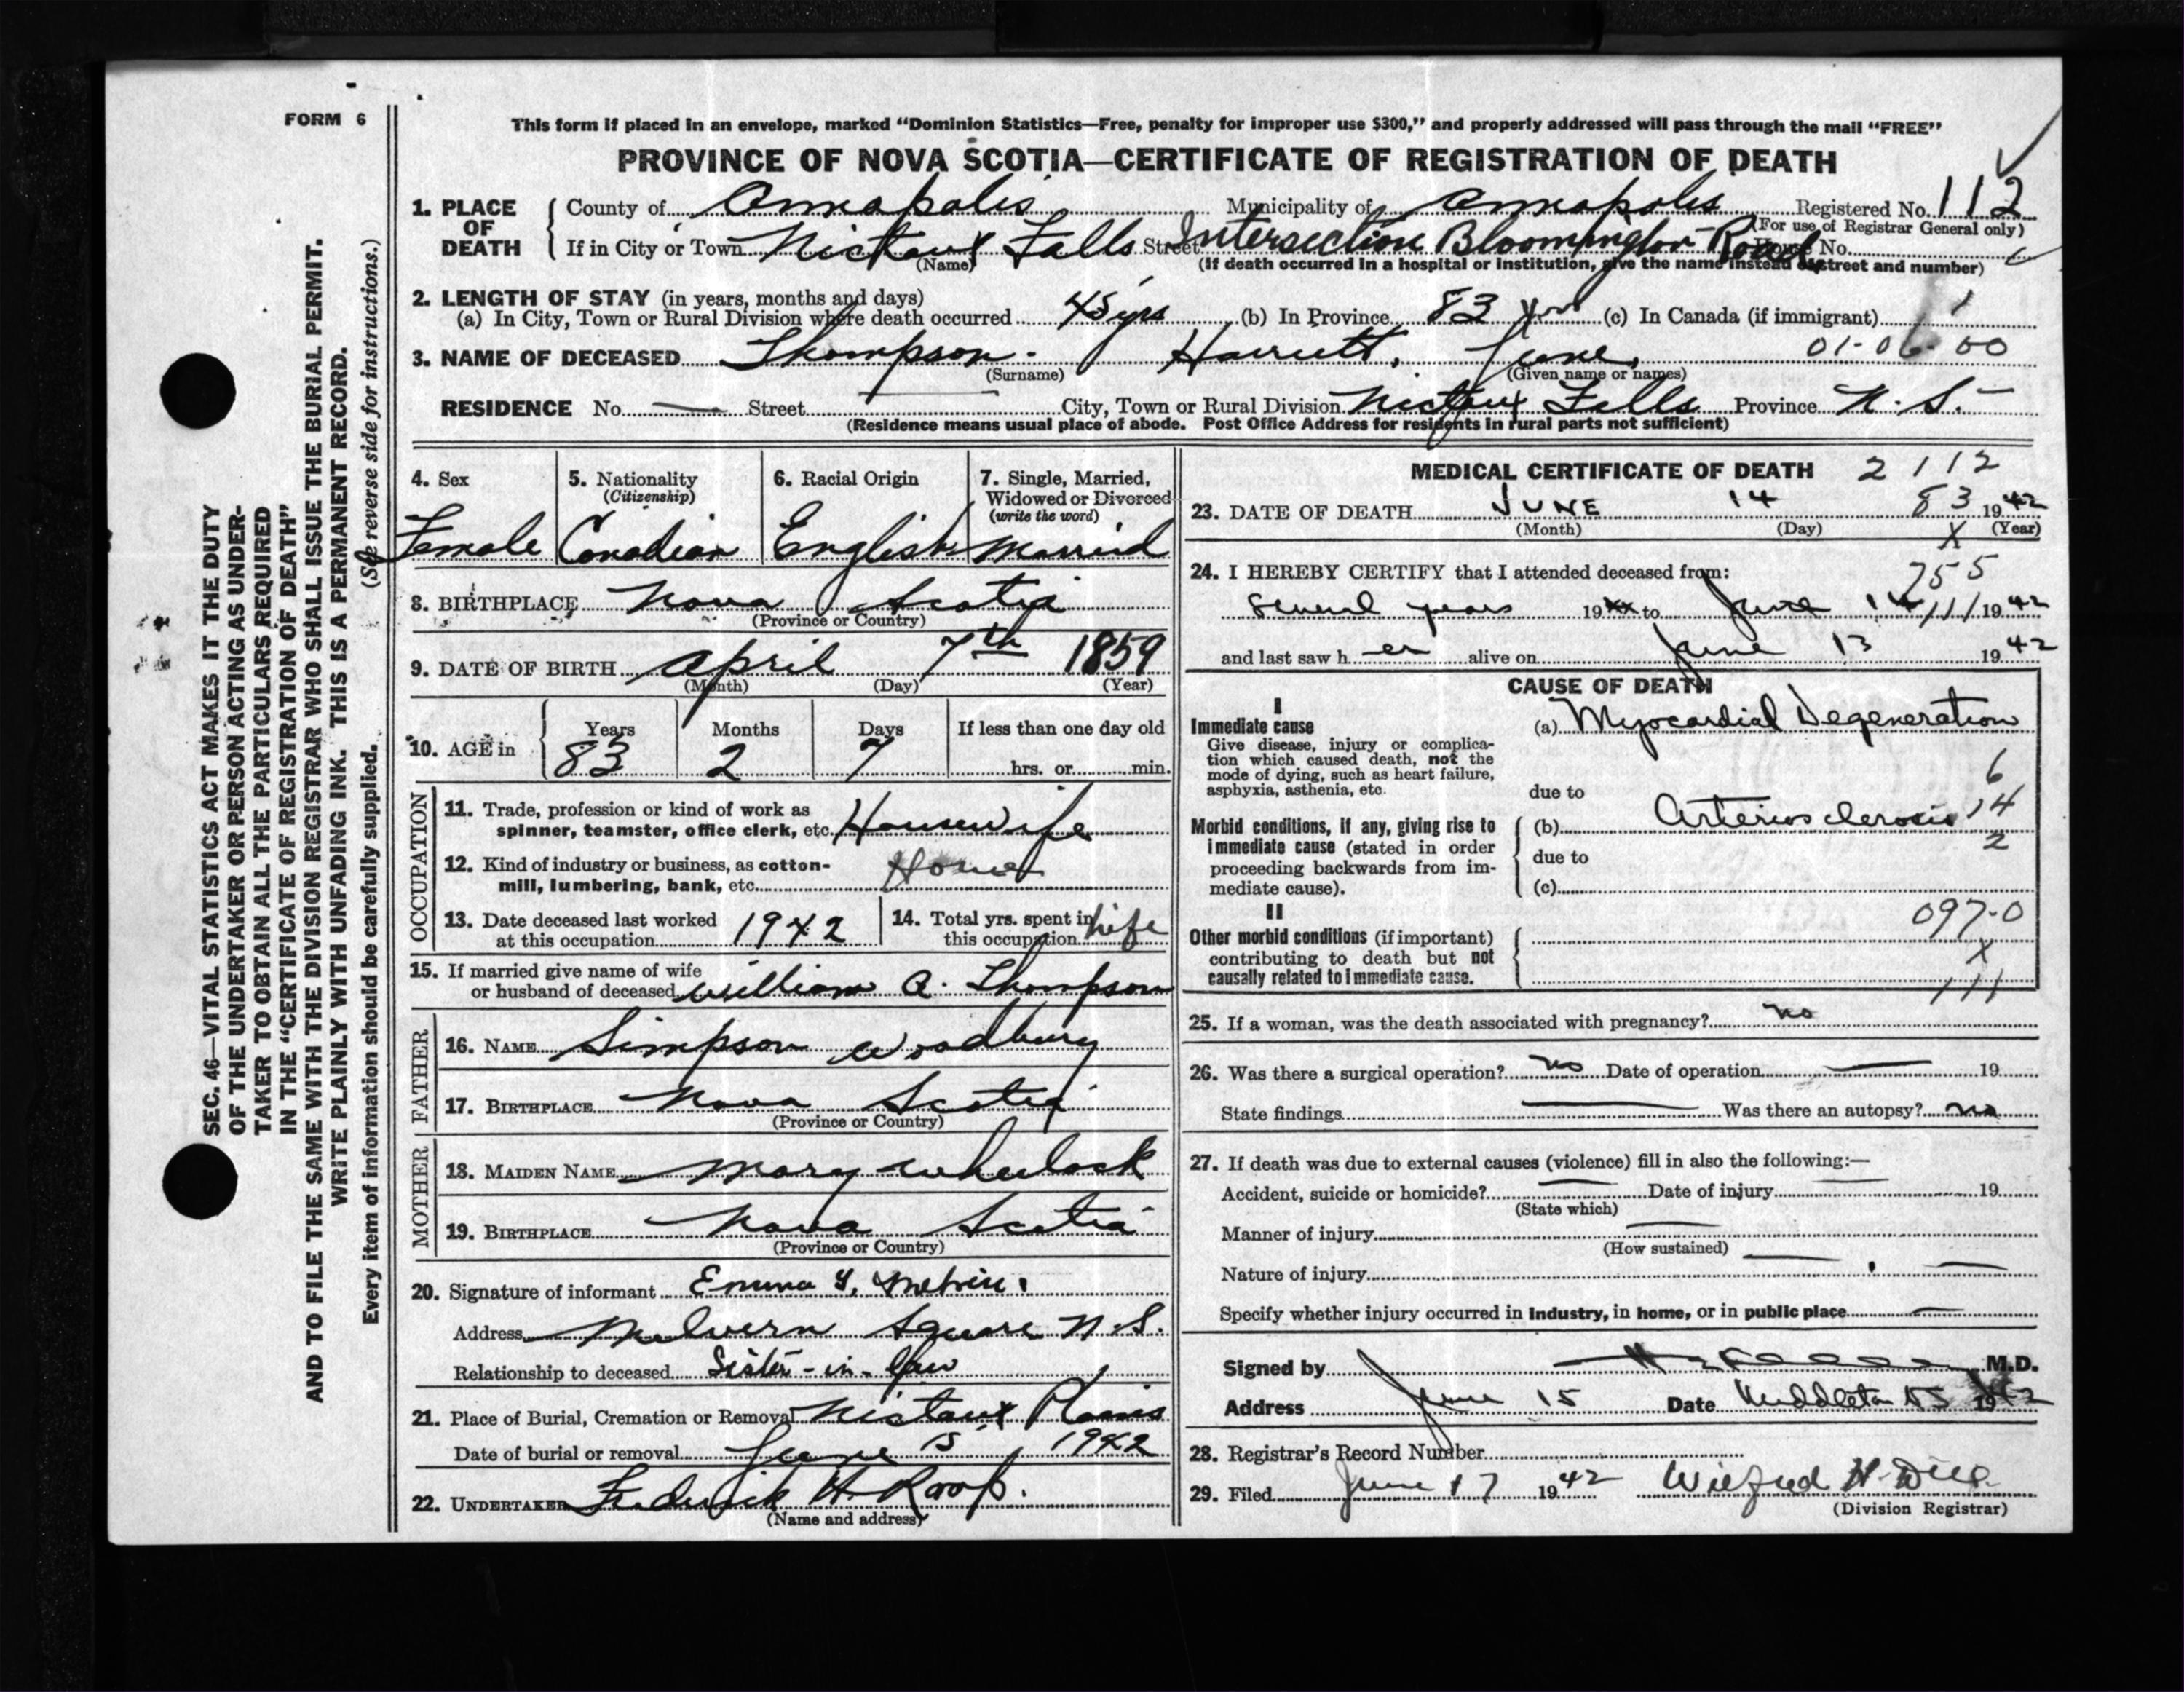 FORM 6
This form if placed in an envelope, marked "Dominion Statistics—Free, penalty for improper use $300," and properly addressed will pass through the mail "FREE"
PROVINCE OF NOVA SCOTIA—CERTIFICATE OF REGISTRATION OF DEATH
1. PLACE OF DEATH County of Annapolis Municipality of Annapolis Registered No. 112
(For use of Registrar General only)
If in City or Town Nictaux Falls Street Intersection Bloomington Road House No.
(Name) (If death occurred in a hospital or institution, give the name instead of street and number)
2. LENGTH OF STAY (in years, months and days)
(a) In City, Town or Rural Division where death occurred 45 yrs (b) In Province 83 (c) In Canada (if immigrant)
3. NAME OF DECEASED Thompson. Harriett, June, 01-06-00
(Surname) (Given name or names)
RESIDENCE No. — Street City, Town or Rural Division Nictaux Falls Province N. S.
(Residence means usual place of abode. Post Office Address for residents in rural parts not sufficient)
4. Sex 5. Nationality (Citizenship) 6. Racial Origin 7. Single, Married, Widowed or Divorced (write the word)
Female Canadian English Married
8. BIRTHPLACE Nova Scotia
(Province or Country)
9. DATE OF BIRTH April 7th 1859
(Month) (Day) (Year)
10. AGE in Years Months Days If less than one day old
83 2 7 hrs. or min.
OCCUPATION
11. Trade, profession or kind of work as spinner, teamster, office clerk, etc. Housewife
12. Kind of industry or business, as cotton-mill, lumbering, bank, etc. Home
13. Date deceased last worked at this occupation 1942 14. Total yrs. spent in this occupation Life
15. If married give name of wife or husband of deceased William A. Thompson
FATHER
16. NAME Simpson Woodbury
17. BIRTHPLACE Nova Scotia
(Province or Country)
MOTHER
18. MAIDEN NAME Mary Wheelock
19. BIRTHPLACE Nova Scotia
(Province or Country)
20. Signature of informant Emma
Address Melvern Square N.S.
Relationship to deceased Sister-in-law
21. Place of Burial, Cremation or Removal Nictaux Plains
Date of burial or removal June 15, 1942
22. UNDERTAKER Frederick H. Roop.
(Name and address)
MEDICAL CERTIFICATE OF DEATH 2112
23. DATE OF DEATH JUNE 14 83 1942
(Month) (Day) X (Year)
24. I HEREBY CERTIFY that I attended deceased from: 755
Several years 19xx to June 14 111 1942
and last saw her alive on June 13 1942
CAUSE OF DEATH
I
Immediate cause (a) Myocardial Degeneration
Give disease, injury or complication which caused death, not the mode of dying, such as heart failure, asphyxia, asthenia, etc.
6
due to
Morbid conditions, if any, giving rise to immediate cause (stated in order proceeding backwards from immediate cause).
(b) Arteriosclerosis 14
due to 2
(c)
II
097-0
Other morbid conditions (if important) contributing to death but not causally related to immediate cause.
X
111
25. If a woman, was the death associated with pregnancy? no
26. Was there a surgical operation? no Date of operation — 19
State findings — Was there an autopsy? no
27. If death was due to external causes (violence) fill in also the following:—
Accident, suicide or homicide? — Date of injury — 19
(State which)
Manner of injury —
(How sustained)
Nature of injury —
Specify whether injury occurred in industry, in home, or in public place —
Signed by M.D.
Address June 15 Date Middleton NS 1942
28. Registrar's Record Number
29. Filed June 17 1942 Wilfred
(Division Registrar)
SEC. 46—VITAL STATISTICS ACT MAKES IT THE DUTY
OF THE UNDERTAKER OR PERSON ACTING AS UNDER-
TAKER TO OBTAIN ALL THE PARTICULARS REQUIRED
IN THE "CERTIFICATE OF REGISTRATION OF DEATH"
AND TO FILE THE SAME WITH THE DIVISION REGISTRAR WHO SHALL ISSUE THE BURIAL PERMIT.
WRITE PLAINLY WITH UNFADING INK. THIS IS A PERMANENT RECORD.
Every item of information should be carefully supplied. (See reverse side for instructions.)